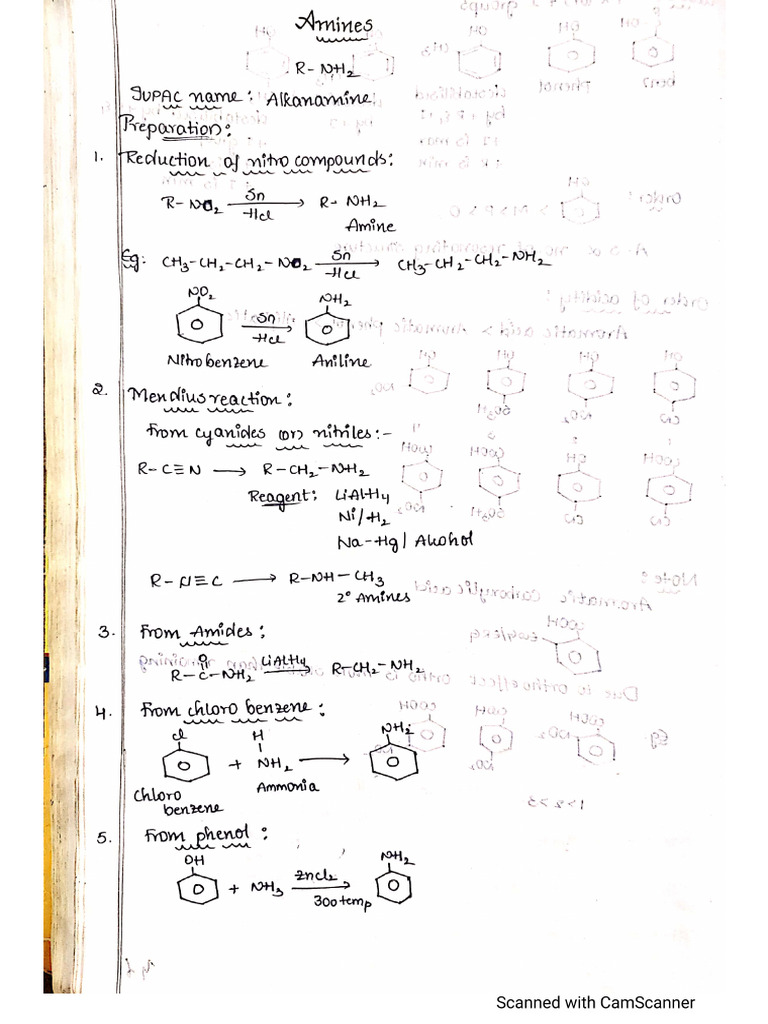 Amines
R-NH₂
IUPAC name: Alkanamine:
Preparation:
1. Reduction of nitro compounds:
R-NO₂ Sn/HCl → R-NH₂
Amine
Eg: CH₃-CH₂-CH₂-NO₂ Sn/HCl → CH₃-CH₂-CH₂-NH₂
NO₂ Sn/HCl → NH₂
Nitrobenzene Aniline
2. Mendius reaction:
From cyanides (or) nitriles:-
R-C≡N → R-CH₂-NH₂
Reagent: LiAlH₄
Ni/H₂
Na-Hg/Alcohol
R-N≡C → R-NH-CH₃
2° Amines
3. From Amides:
O
R-C-NH₂ LiAlH₄ → R-CH₂-NH₂
4. From chloro benzene:
Cl H NH₂
+ NH₂ →
Chloro Ammonia
benzene
5. From phenol:
OH NH₂
+ NH₃ ZnCl₂ →
300 temp
Scanned with CamScanner